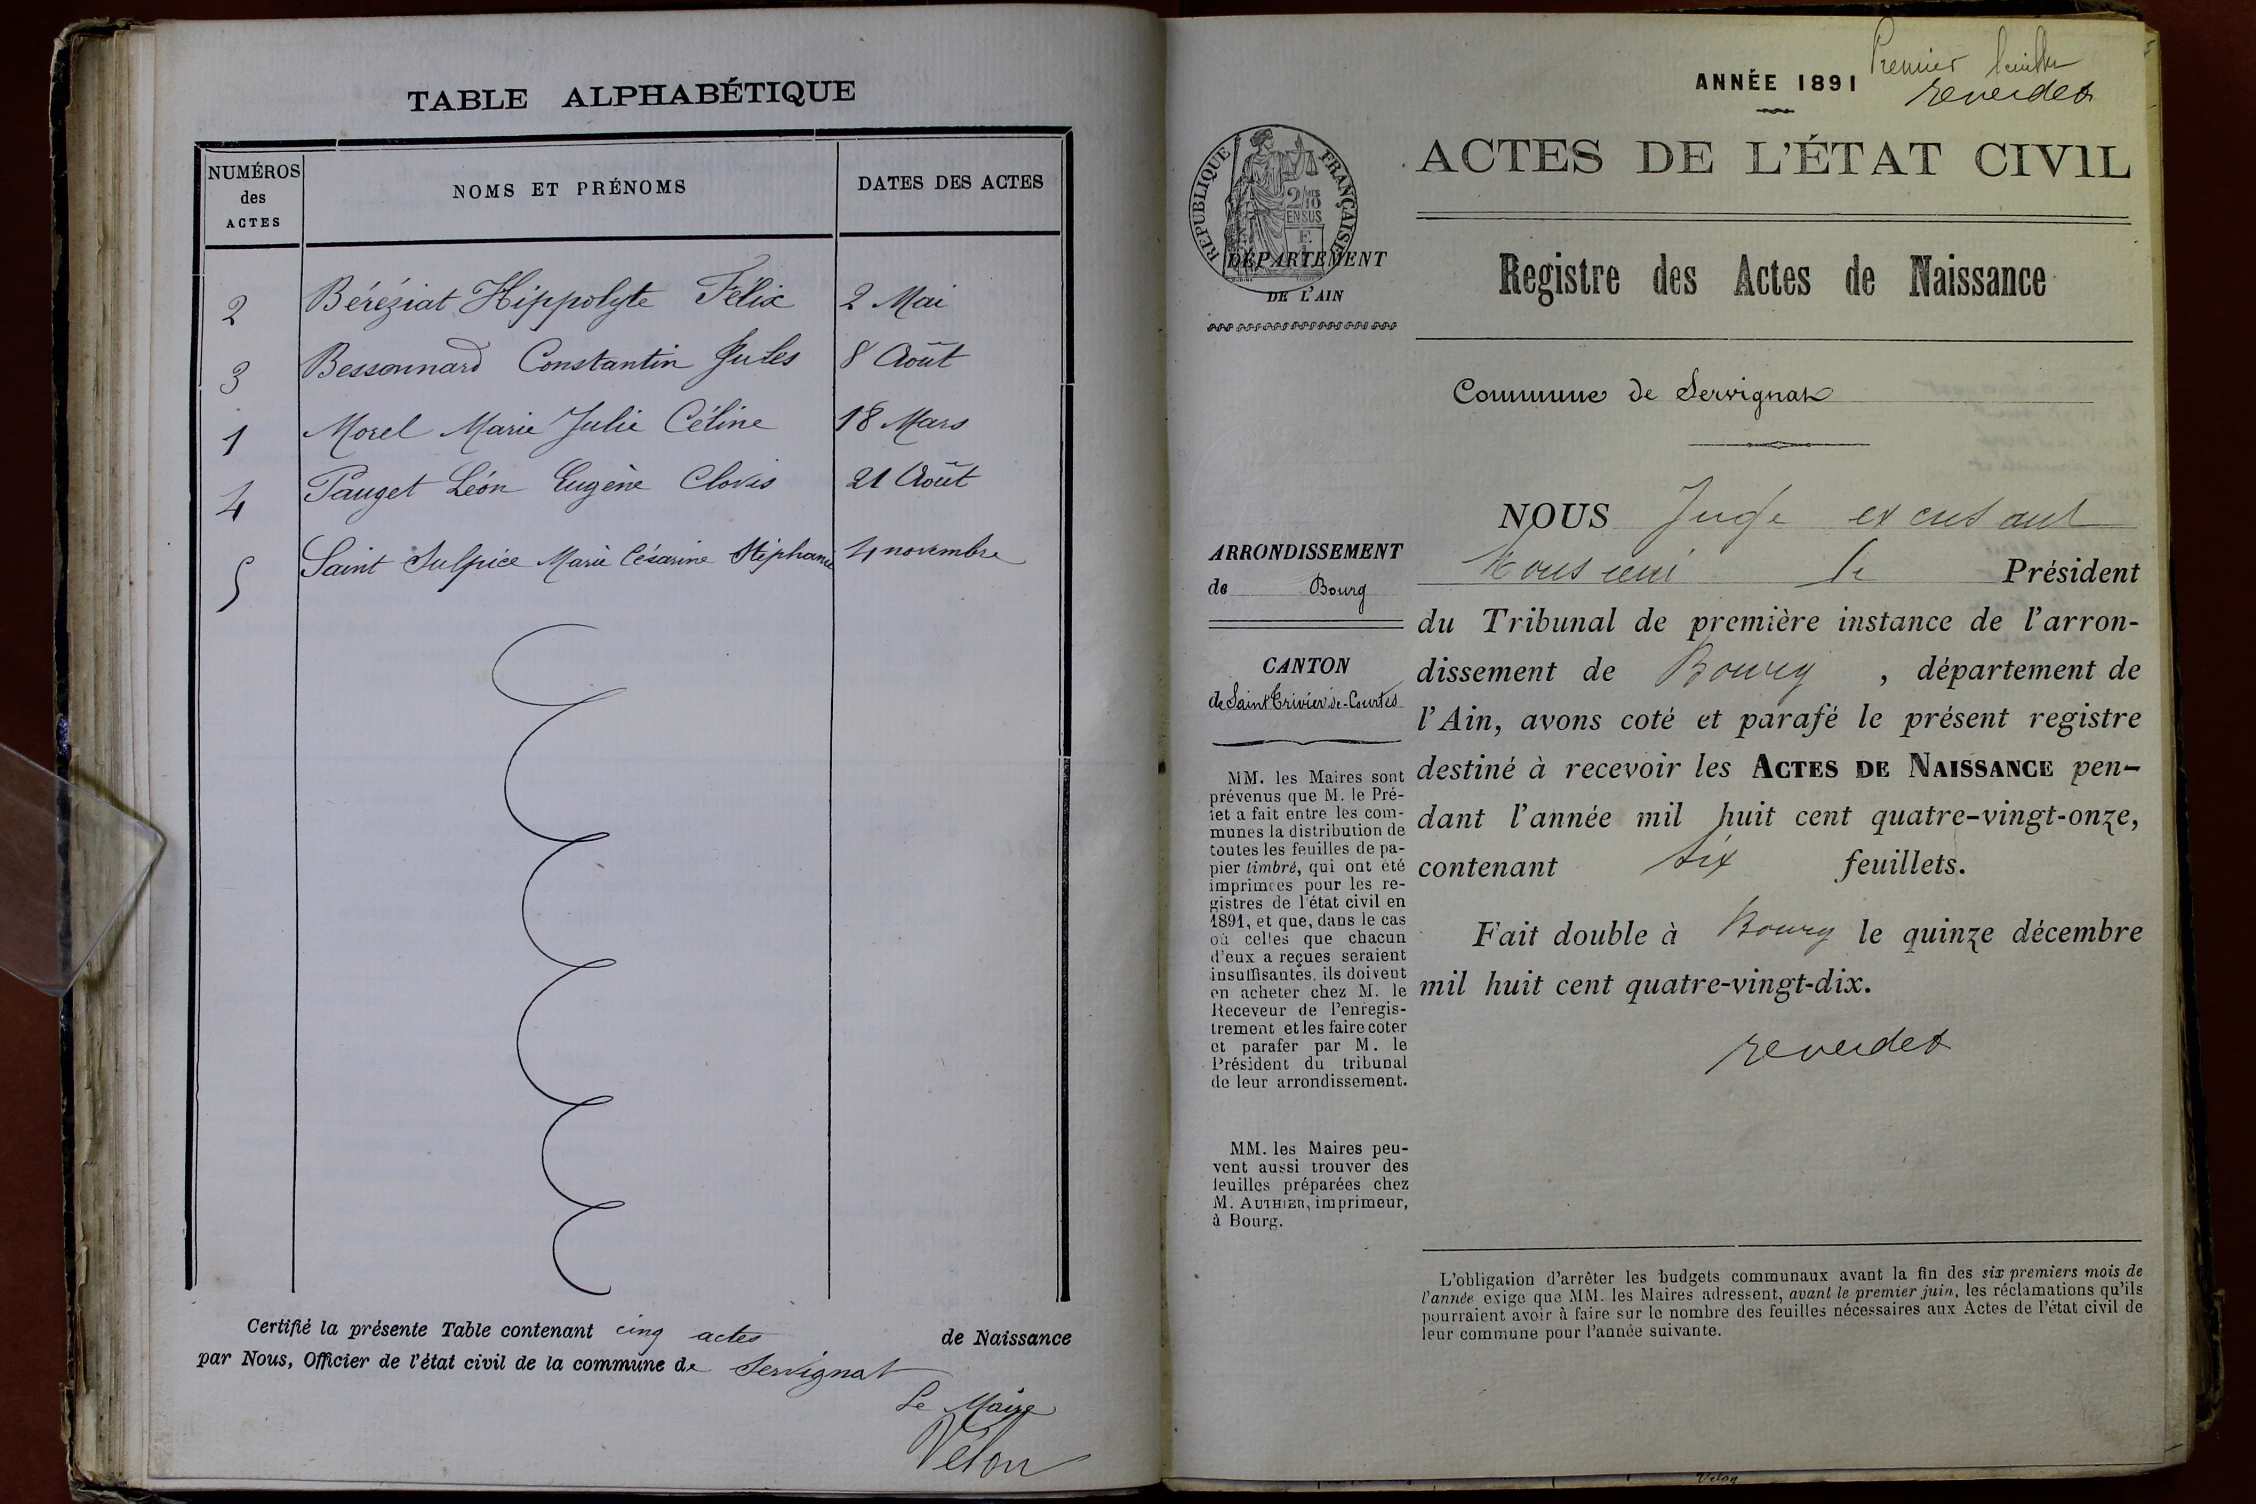 TABLE ALPHABÉTIQUE
NUMÉROS
des
ACTES
NOMS ET PRÉNOMS
DATES DES ACTES
2 Béréziat Hippolyte Félix 2 Mai
3 Bessonnard Constantin Jules 8 Août
1 Morel Marie Julie Céline 18 Mars
4 Pauget Léon Eugène Clovis 21 Août
5 Saint Sulpice Marie Césarine Stéphanie 4 novembre
Certifié la présente Table contenant cinq actes de Naissance
par Nous, Officier de l'état civil de la commune de Servignat
Le Maire
Velon
Premier feuillet
ANNÉE 1891
reverdet
ACTES DE L'ÉTAT CIVIL
RÉPUBLIQUE FRANÇAISE
2/10
EN SUS
DÉPARTEMENT
DE L'AIN
Registre des Actes de Naissance
Commune de Servignat
ARRONDISSEMENT
de Bourg
CANTON
de Saint Trivier-de-Courtes
MM. les Maires sont
prévenus que M. le Pré-
fet a fait entre les com-
munes la distribution de
toutes les feuilles de pa-
pier timbré, qui ont été
imprimées pour les re-
gistres de l'état civil en
1891, et que, dans le cas
où celles que chacun
d'eux a reçues seraient
insuffisantes, ils doivent
en acheter chez M. le
Receveur de l'enregis-
trement et les faire coter
et parafer par M. le
Président du tribunal
de leur arrondissement.
MM. les Maires peu-
vent aussi trouver des
feuilles préparées chez
M. AUTHIER, imprimeur,
à Bourg.
NOUS Juge excusant
Monsieur le Président
du Tribunal de première instance de l'arron-
dissement de Bourg, département de
l'Ain, avons coté et parafé le présent registre
destiné à recevoir les ACTES DE NAISSANCE pen-
dant l'année mil huit cent quatre-vingt-onze,
contenant six feuillets.
Fait double à Bourg le quinze décembre
mil huit cent quatre-vingt-dix.
reverdet
L'obligation d'arrêter les budgets communaux avant la fin des six premiers mois de
l'année exige que MM. les Maires adressent, avant le premier juin, les réclamations qu'ils
pourraient avoir à faire sur le nombre des feuilles nécessaires aux Actes de l'état civil de
leur commune pour l'année suivante.